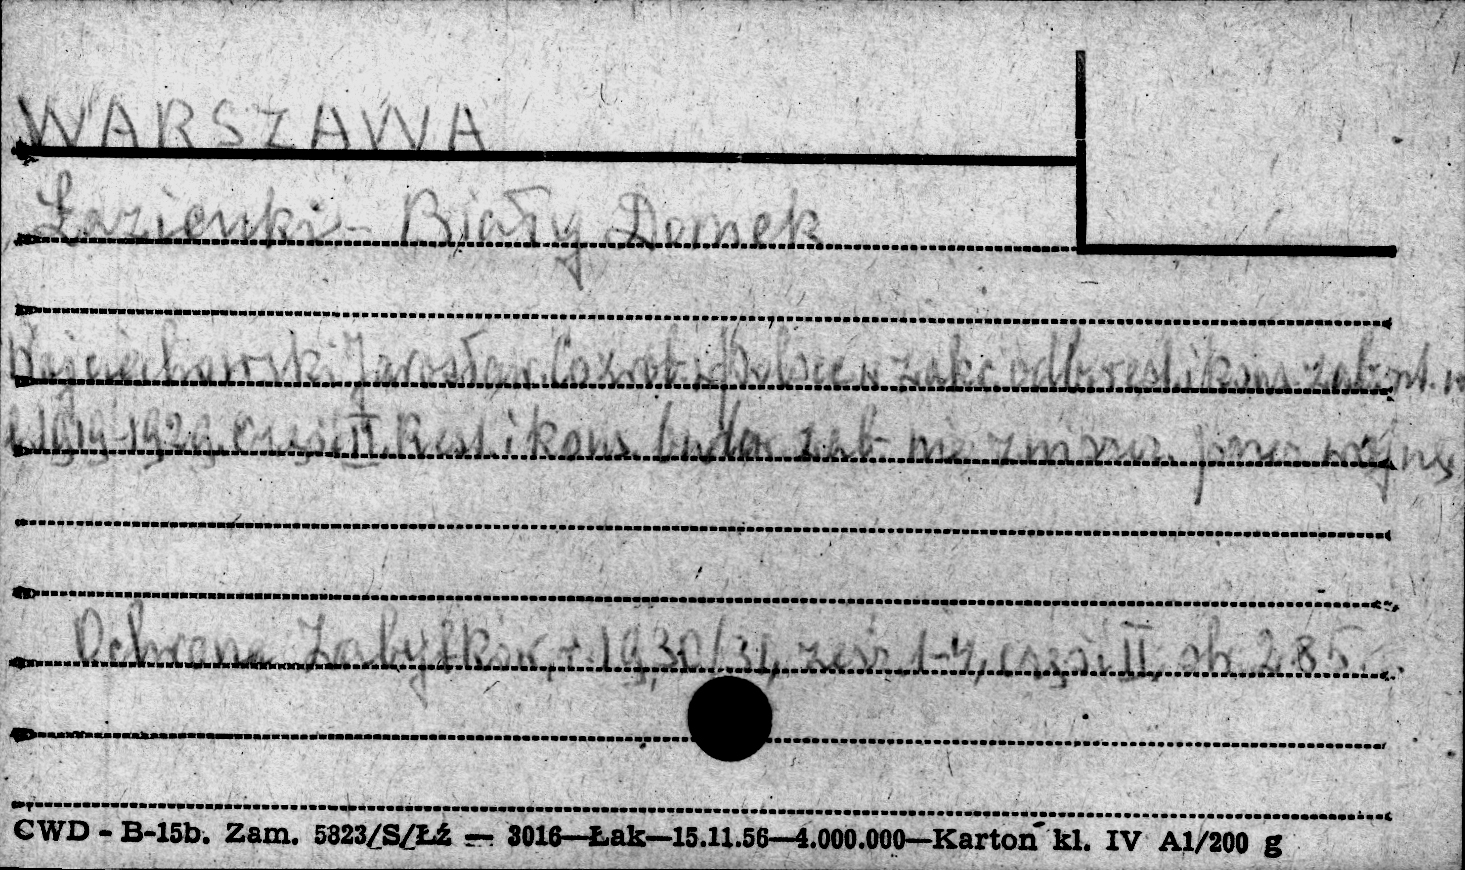 WARSZAWA
Łazienki - Biały Domek
Wojciechowski Jarosław, Co zrob. w Polsce w zakr. odb. rest. i kons. zabyt. w
l. 1919-1929. Część II. Rest. i kons. budow. zab. nie zniszcz. przez wojnę
Ochrona Zabytków, r. 1930/31, zesz. 1-4, część II, str. 285.
CWD - B-15b. Zam. 5823/S/Łź — 3016—Łak—15.11.56—4.000.000—Karton kl. IV A1/200 g